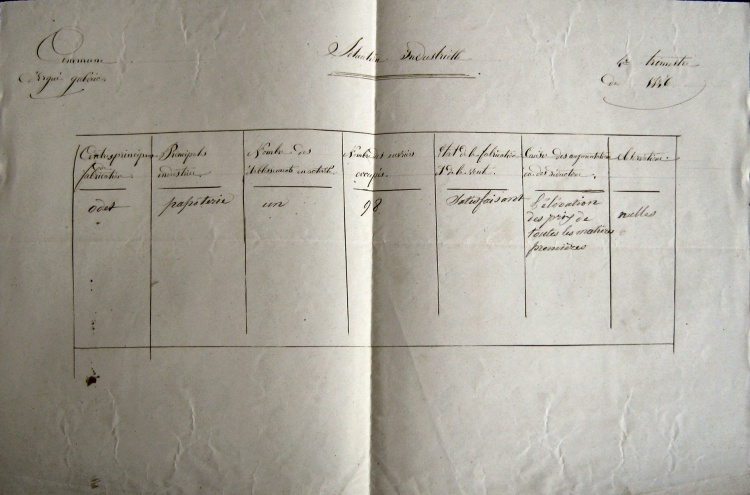 Commune
d'Ergué gabéric
Situation Industrielle
4e trimestre
de 1856
Centres principaux
de
fabrication
Principales
industries
Nombre des
établissements en activité
Nombre des ouvriers
occupés
État de la fabrication
et de la vente
Cause des augmentations
ou des réductions
Observations
odet
papeterie
un
98
Satisfaisant
l'élévation
des prix de
toutes les matières
premières
nulles